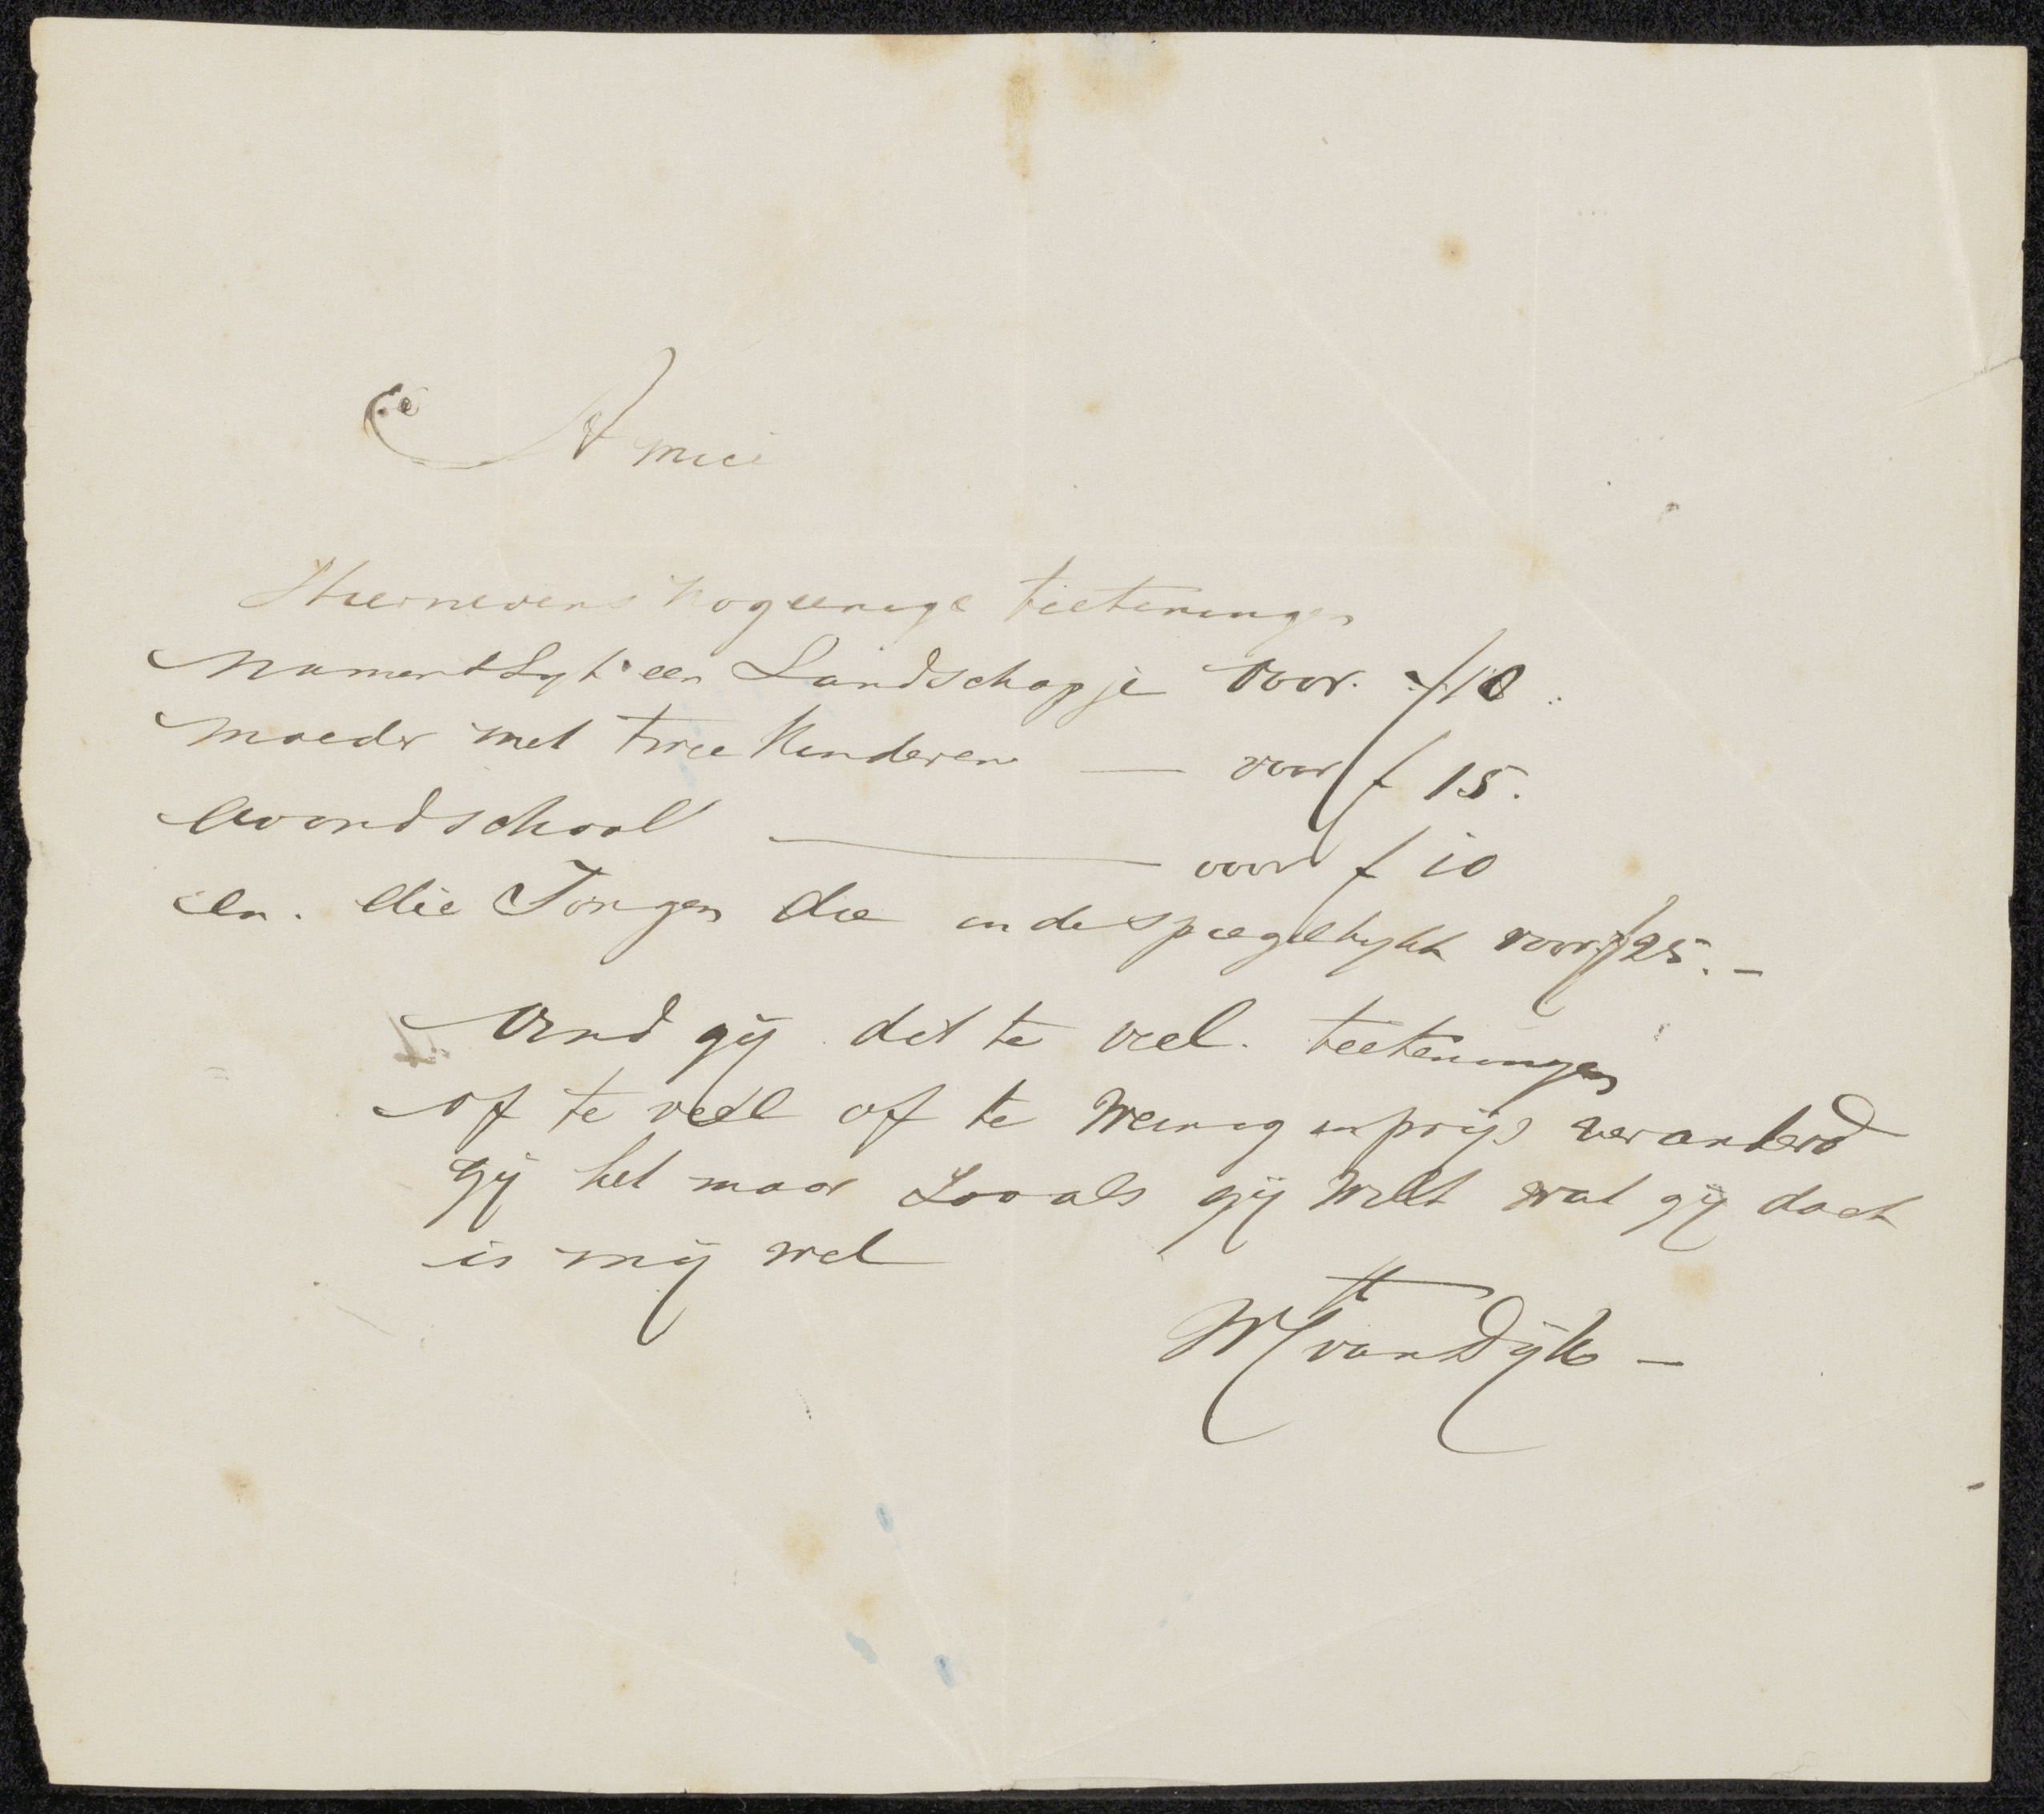 Amice
Hiernevens nog eenige teeteningen
namentlyk een Landschapje voor f 10.
moeder met twee kinderen — voor f 15.
avondschool — voor f 10
en. die Jongen die in de spiegel kykt voor f 25. —
vind gij dit te veel. teeteningen
of te veel of te weinig in prijs veranderd
gij het maar zoo als gij wilt wat gij doet
is mij wel
WH van Dijk —